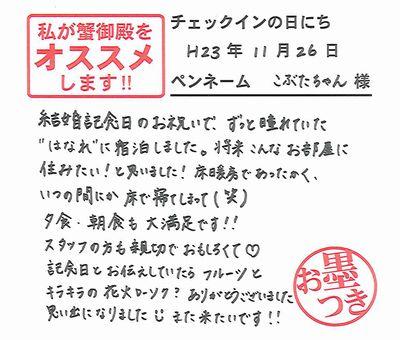 私が蟹御殿を
オススメ
します!!
チェックインの日にち
H23年 11月26日
ペンネーム こぶたちゃん 様
結婚記念日のお祝いで、ずっと憧れていた
"はなれ"に宿泊しました。将来こんなお部屋に
住みたい!と思いました! 床暖房であったかく、
いつの間にか 床で寝てしまって(笑)
夕食・朝食も 大満足です!!
スタッフの方も親切でおもしろくて♡
記念日とお伝えしていたら フルーツと
キラキラの 花火ローソク? ありがとうございました
思い出になりました☺ また来たいです!!
お墨つき